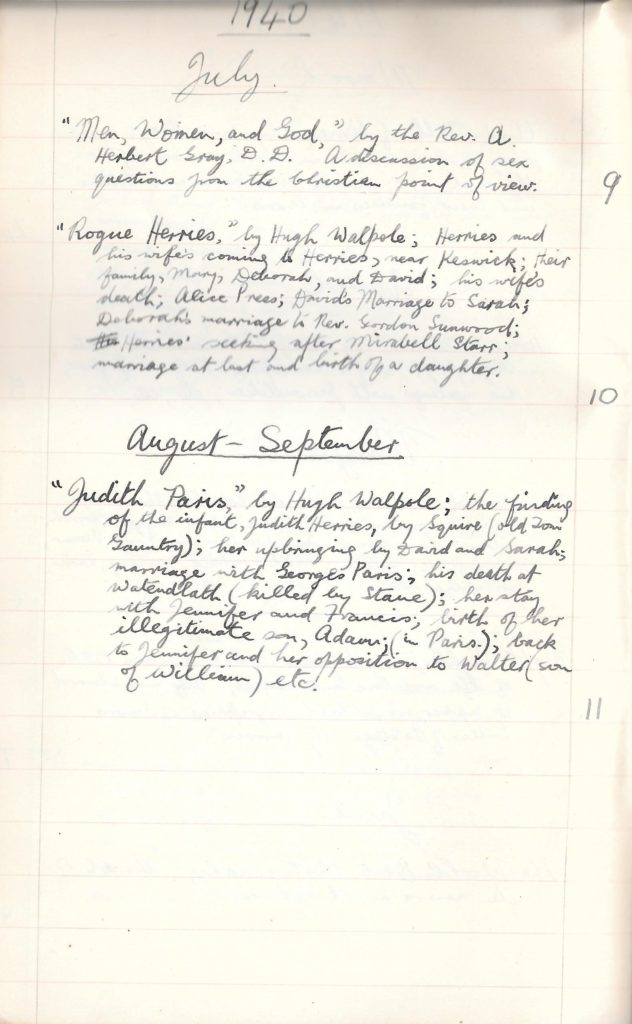 1940
July.
"Men, Women, and God," by the Rev. A.
Herbert Gray, D.D. A discussion of sex
questions from the Christian point of view.
9
"Rogue Herries," by Hugh Walpole; Herries and
his wife's coming to Herries, near Keswick; their
family, Mary, Deborah, and David; his wife's
death; Alice Press; David's Marriage to Sarah;
Deborah's marriage to Rev. Gordon Sunwood;
Herries' seeking after Mirabell Starr;
marriage at last and birth of a daughter.
10
August – September.
"Judith Paris," by Hugh Walpole; the finding
of the infant, Judith Herries, by Squire (old Tom
Gauntry); her upbringing by David and Sarah;
marriage with Georges Paris; his death at
Watendlath (killed by Stane); her stay
with Jennifer and Francis; birth of her
illegitimate son, Adam; (in Paris.); back
to Jennifer and her opposition to Walter (son
of William) etc.
11